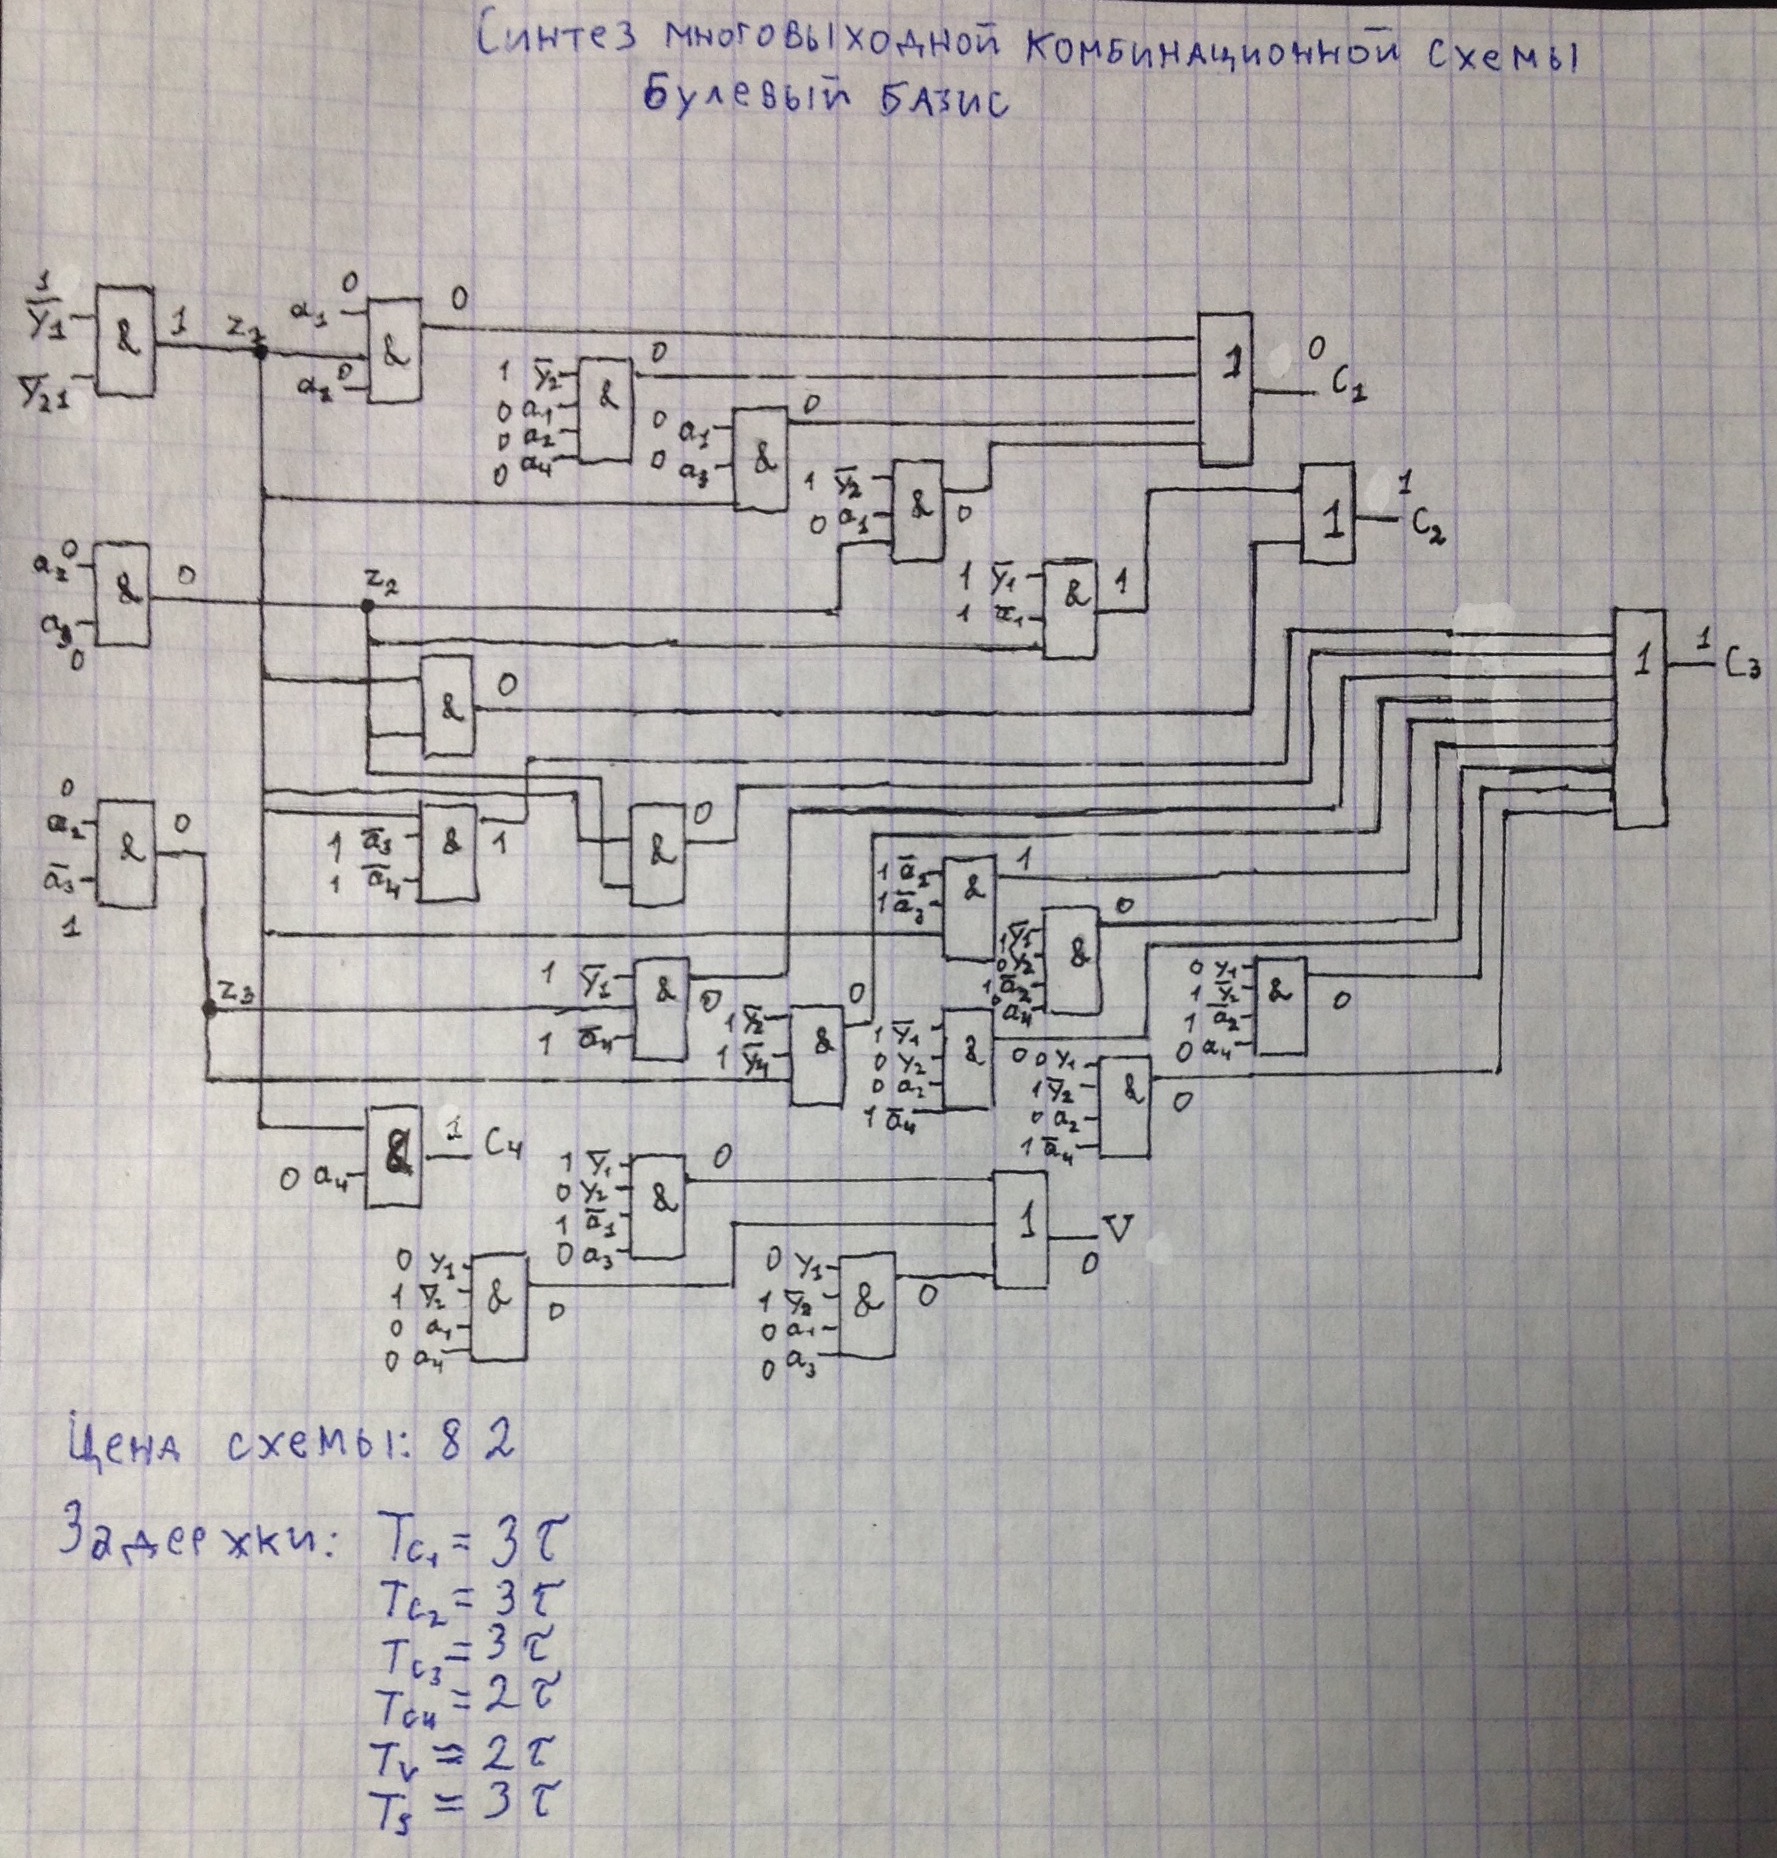 Синтез многовыходной комбинационной схемы
Булевый базис
1
y̅1
y̅21
&
1
z1
0
a1
a2 0
&
0
1 y̅2
0 a1
0 a2
0 a4
&
0
0 a1
0 a3
&
0
1 y̅2
0 a1
&
0
1
0
C1
a2 0
a3
0
&
0
z2
1 y̅1
1 a̅1
&
1
1
1
C2
&
0
1
1
C3
0
a2
a̅3
1
&
0
1 a̅3
1 a̅4
&
1
&
0
1 a̅2
1 a̅3
&
1
1 y̅1
0 y2
1 a̅2
0 a4
&
0
0 y1
1 y̅2
1 a̅2
0 a4
&
0
z3
1 y̅1
1 a̅4
&
0
1 y̅2
1 y̅4
&
0
1 y̅1
0 y2
0 a2
1 a̅4
&
0
0 y1
1 y̅2
0 a2
1 a̅4
&
0
0 a4
&
1
C4
1 y̅1
0 y2
1 a̅1
0 a3
&
0
1
V
0
0 y1
1 y̅2
0 a1
0 a4
&
0
0 y1
1 y̅2
0 a1
0 a3
&
0
Цена схемы: 82
Задержки: Tc1 = 3τ
Tc2 = 3τ
Tc3 = 3τ
Tc4 = 2τ
Tv = 2τ
Ts = 3τ